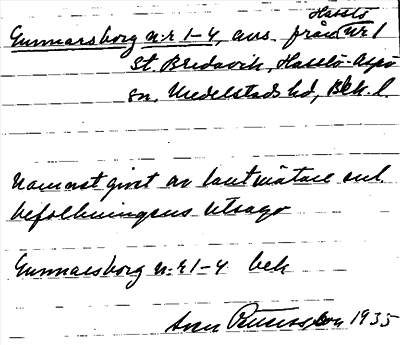 Hasslö
Gunnarsborg n:r 1-4, avs. från nr 1
St. Bredavik, Hasslö-Aspö
sn, Medelstads hd, Blek. l.
Namnet givet av lantmätare enl.
befolkningens utsago
Gunnarsborg n:r 1-4 bek
1935